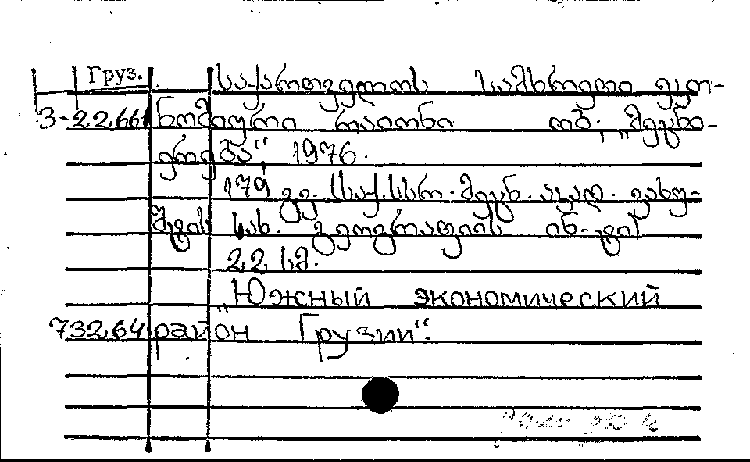 Груз.
საქართველოს სამხრეთი ეკო-
3-22.661 ნომიური რაიონი თბ., „მეცნი-
ერება“, 1976.
179 გვ. (საქ.სსრ. მეცნ. აკად. ვახუ-
შტის სახ. გეოგრაფიის ინ-ტი)
22 სმ.
„Южный экономический
732.64 район Грузии“.